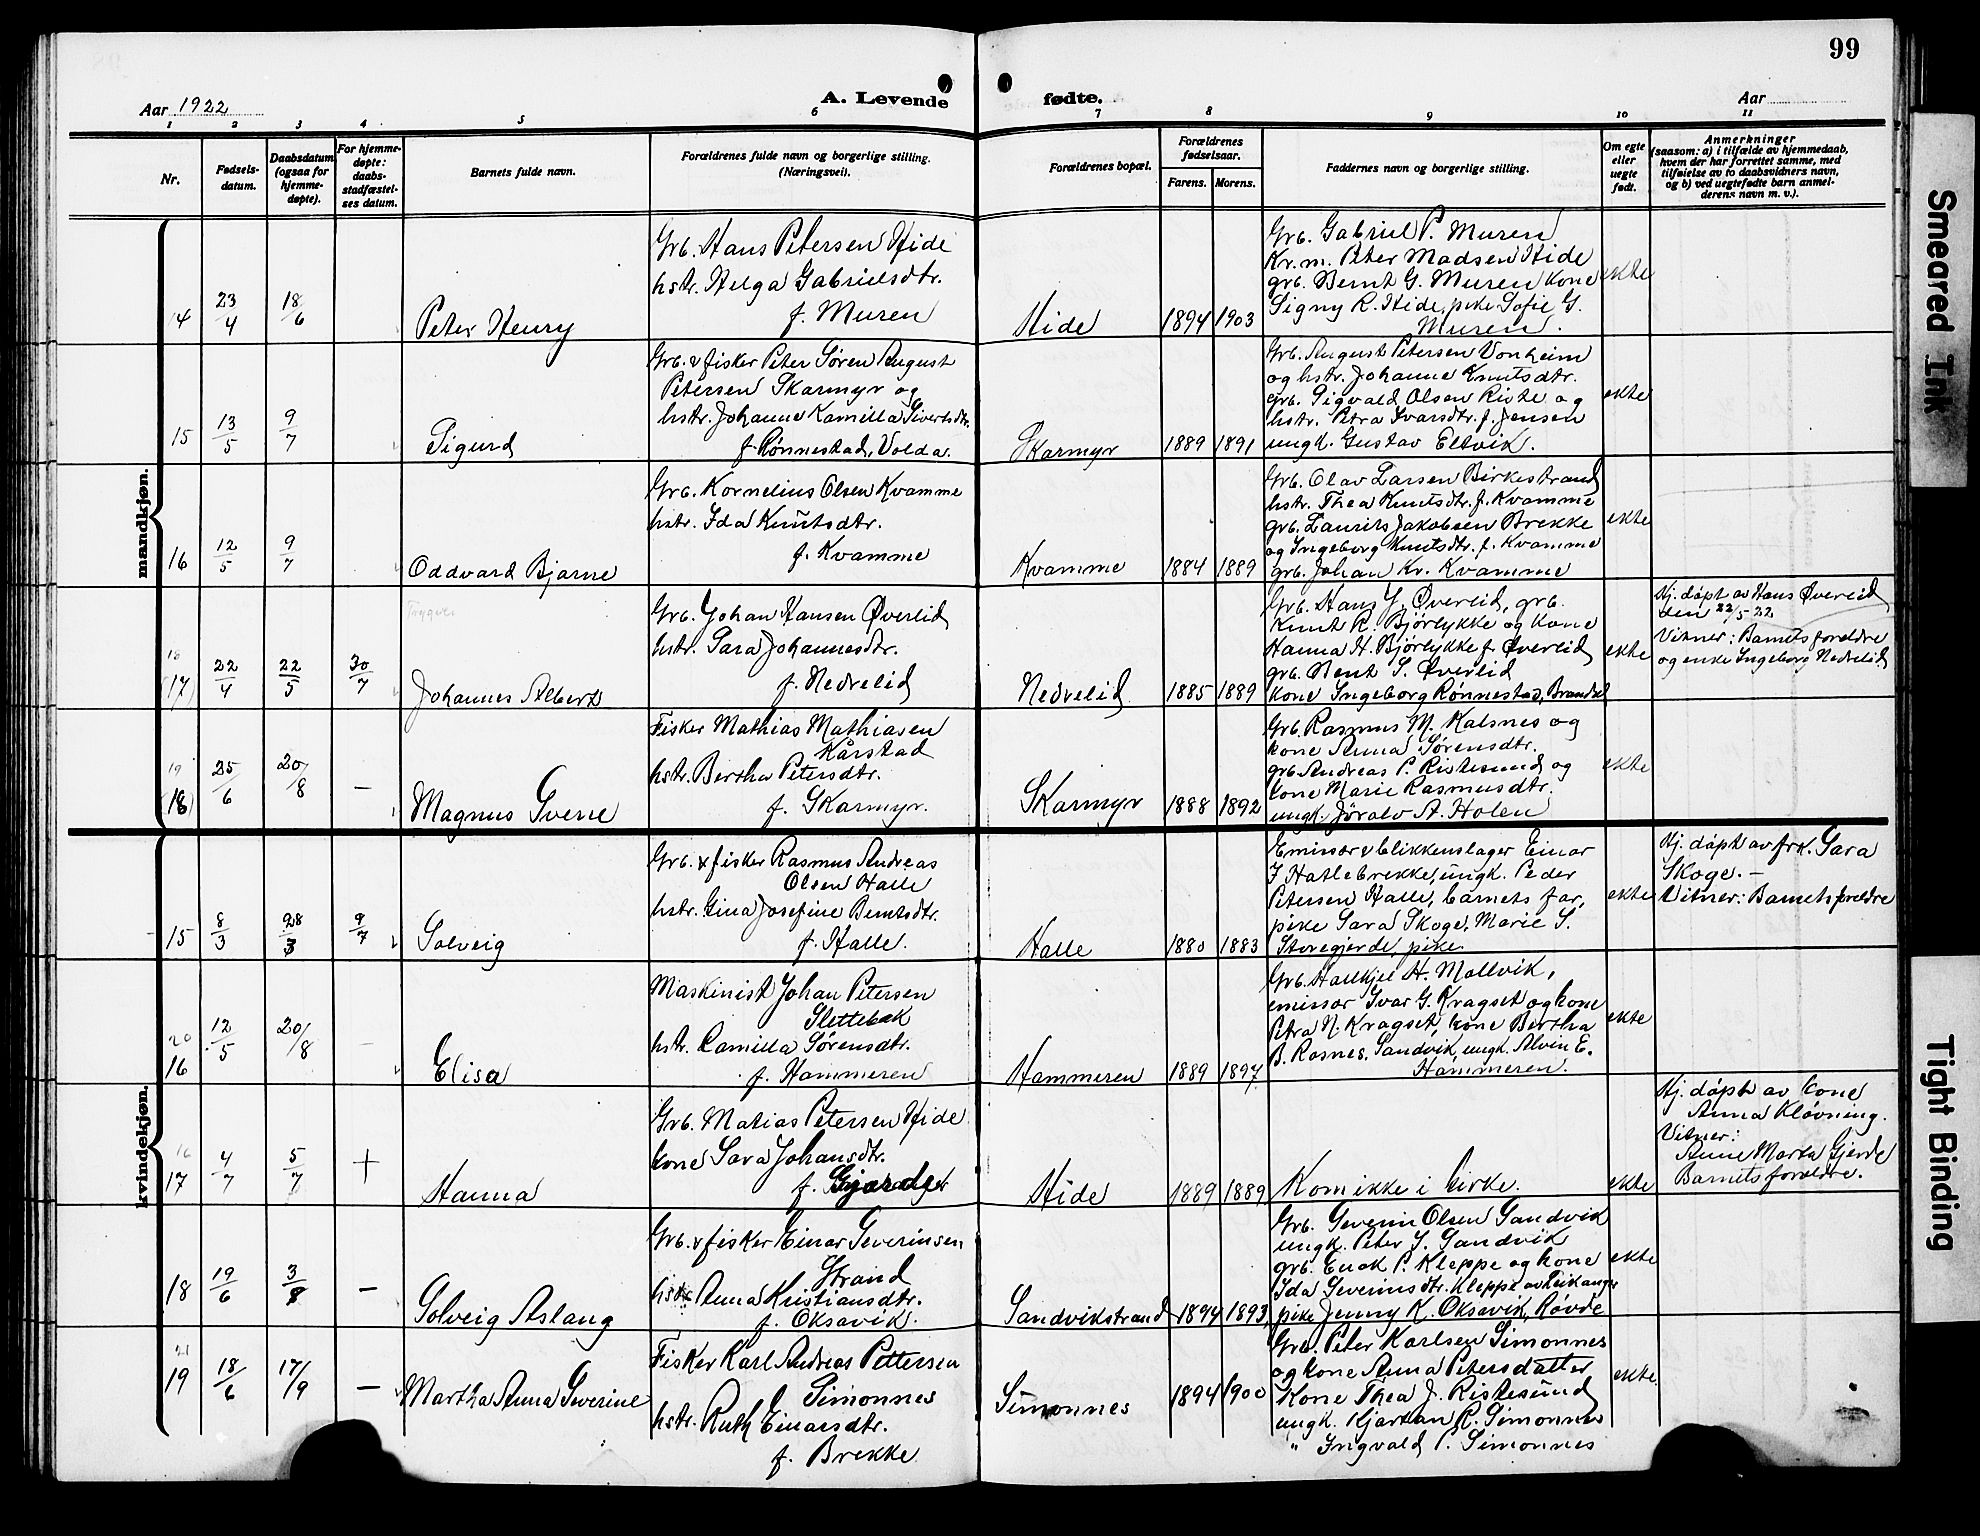 99
Aar 1922
A. Levende
fødte.
Aar
1 2 3 4 5 6 7 8 9 10 11
Nr.
Fødsels-
datum.
Daabsdatum
(ogsaa for
hjemme-
døpte).
For hjemme-
døpte:
daabs-
stadfæstel-
ses datum.
Barnets fulde navn.
Forældrenes fulde navn og borgerlige stilling.
(Næringsvei).
Forældrenes bopæl.
Forældrenes
fødselsaar.
Farens. Morens.
Faddernes navn og borgerlige stilling.
Om egte
eller
uegte
født.
Anmerkninger
(saasom: a) i tilfælde av hjemmedaab,
hvem der har forrettet samme, med
tilføielse av to daabsvidners navn,
og b) ved uegtefødte barn anmel-
derens navn m. v.).
mandkjøn.
14
23/4
18/6
Peter Henry
Grb. Hans Petersen Hide
hstr. Helga Gabrielsdtr.
f. Muren
Hide
1894 1903
Grb. Gabriel P. Muren
Kr.m. Peter Madsen Hide
grb. Bernt G. Muren kone
Signy R. Hide, pike Sofie G.
Muren.
ekte
15
13/5
9/7
Sigurd
Grb. & fisker Peter Søren August
Petersen Skarmyr og
hstr. Johanne Kamilla Sivertsdtr.
f. Rønnestad, Volda.
Skarmyr
1889 1891
Grb. August Petersen Vonheim
og hstr. Johanne Knutsdtr.
grb. Sigvald Olsen Riste og
hstr. Petra Ivarsdtr. f. Jensen
ungk. Gustav Eltvik.
ekte
16
12/5
9/7
Oddvard Bjarne
Grb. Kornelius Olsen Kvamme
hstr. Ida Knutsdtr.
f. Kvamme
Kvamme
1884 1889
Grb. Olav Larsen Birkestrand
hstr. Thea Knutsdtr. f. Kvamme
grb. Laurits Jakobsen Brekke
og Ingeborg Knutsdtr. f. Kvamme
grb. Johan Kr. Kvamme
ekte
Trygve
18
(17)
22/4
22/5
30/7
Johannes Albert
Grb. Johan Hansen Øverlid
hstr. Sara Johannesdtr.
f. Nedrelid
Nedrelid
1885 1889
Grb. Hans J. Øverlid, grb.
Knut R. Bjørlykke og kone
Hanna H. Bjørlykke f. Øverlid
grb. Bent S. Øverlid
kone Ingeborg Rønnestad, Brandal
ekte
Hj. døpt av Hans Øverlid
den 22/5 22
Vitner: Barnets foreldre
og enke Ingeborg Nedrelid
19
(18)
25/6
20/8
—
Magnus Sverre
Fisker Mathias Mathiasen
Kårstad
hstr. Bertha Petersdtr.
f. Skarmyr.
Skarmyr
1888 1892
Grb. Rasmus M. Kalsnes og
kone Anna Sørensdtr.
grb. Andreas P. Ristesund og
kone Marie Rasmusdtr.
ungk. Jøralv A. Holen
ekte
kvindekjøn.
15
8/3
28/3
9/7
Solveig
Grb. & fisker Rasmus Andreas
Olsen Halle
hstr. Gina Josefine Berntsdtr.
f. Halle.
Halle
1880 1883
Emissær & blikkenslager Einar
J Hatlebrekke, ungk. Peder
Petersen Halle, barnets far,
pike Sara Skoge, Marie S.
Storegjerde, pike.
ekte
Hj. døpt av frk. Sara
Skoge. —
Vitner: Barnets foreldre
20
16
12/5
20/8
—
Elisa
Maskinist Johan Petersen
Slettebak
hstr. Camilla Sørensdtr.
f. Hammeren
Hammeren
1889 1897
Grb. Hallkjel H. Mollvik,
emissær Ivar G. Kragset og kone
Petra N. Kragset, kone Bertha
B. Rosnes, Sandvik, ungk. Alvin E.
Hammeren.
ekte
16
17
4/7
5/7
+
Hanna
Grb. Matias Petersen Hide
kone Sara Johansdtr.
f. Gjerde
Hide
1889 1889
Kom ikke i kirke.
ekte
Hj. døpt av kone
Anna Kløvning.
Vitner:
Anne Marta Gjerde
Barnets foreldre.
18
19/6
3/9
—
Solveig Aslaug
Grb. & fisker Einar Severinsen
Strand
hstr. Anna Kristiansdtr.
f. Oksavik.
Sandvikstrand
1894 1893
Grb. Severin Olsen Sandvik
ungk. Peter S. Sandvik
grb. Enok P. Kleppe og kone
Ida Severinsdtr. Kleppe av Leikanger
pike Jenny K. Oksavik, Røvde
ekte
21
19
18/6
17/9
—
Martha Anna Severine
Fisker Karl Andreas Pettersen
Simonnes
hstr. Ruth Einarsdtr.
f. Brekke
Simonnes
1894 1900
Grb. Peter Karlsen Simonnes
og kone Anna Petersdatter
Kone Thea J. Ristesund
ungk. Kjartan R. Simonnes
" Ingvald P. Simonnes
ekte.
Smeared Ink
Tight Binding